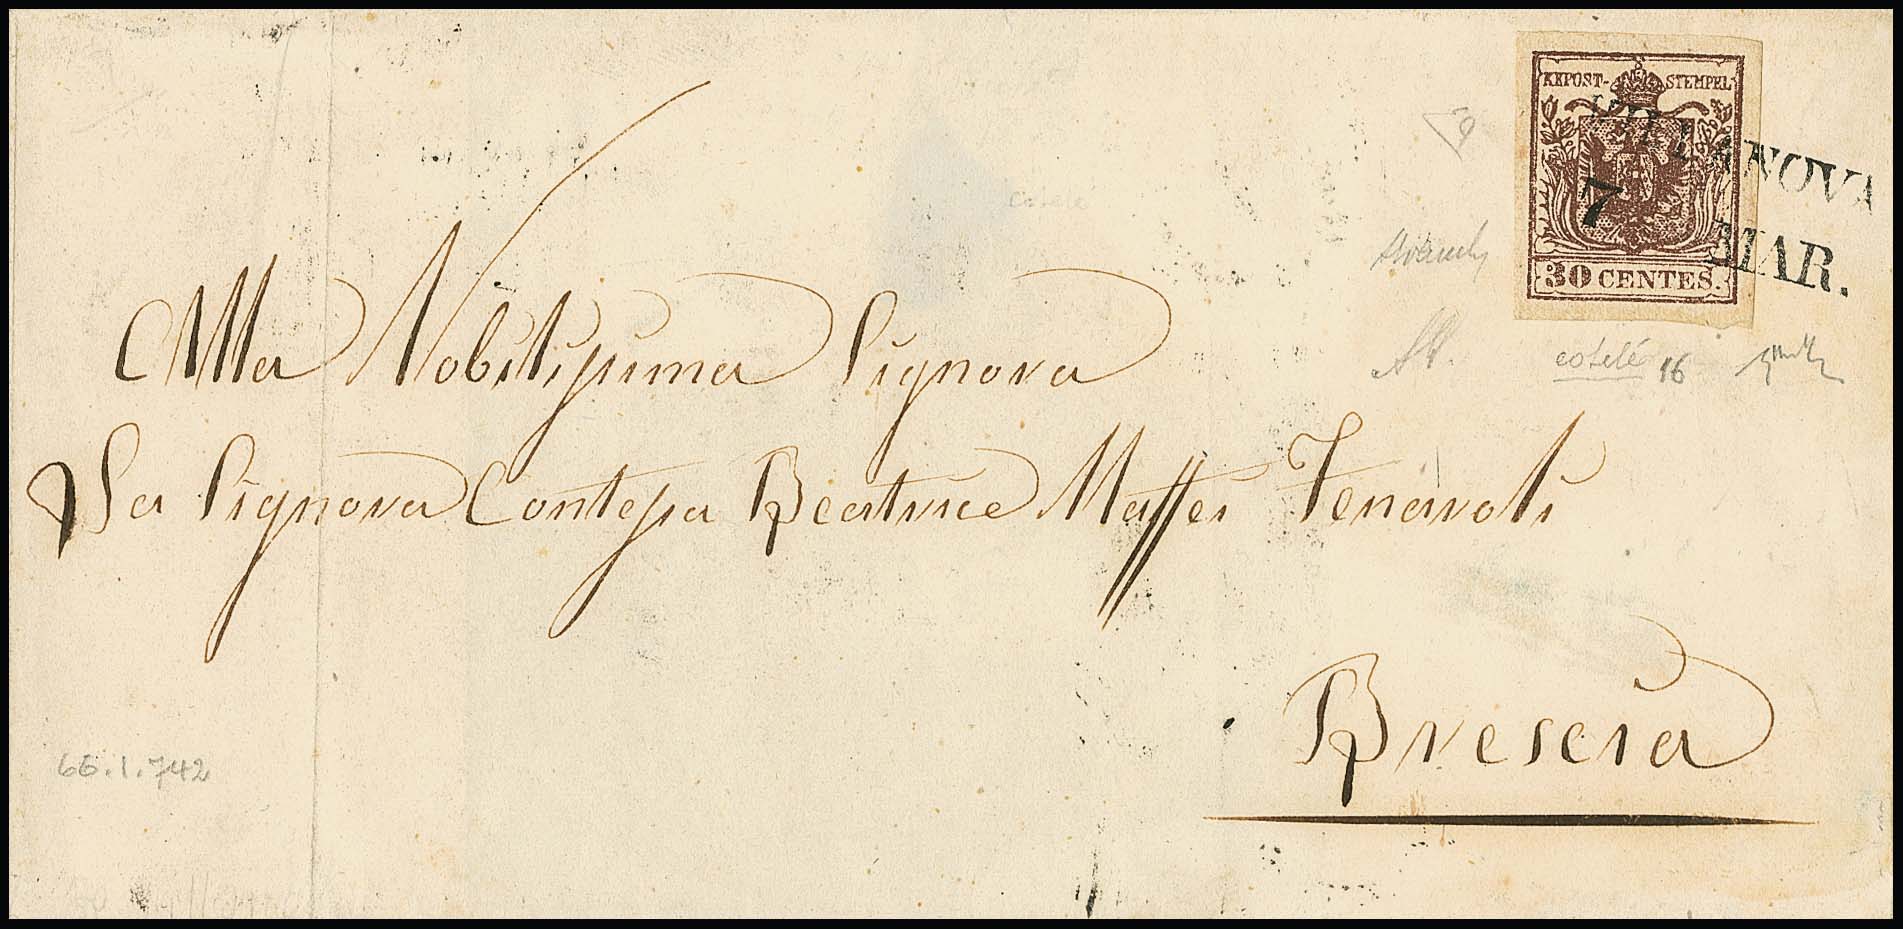 KKPOST-STEMPEL
VILLANOVA
7 MAR.
30 CENTES.
costelé
costelé 16
Alla Nobilissima Signora
La Signora Contessa Beatrice Maffei Fenaroli
Brescia
66.1.742